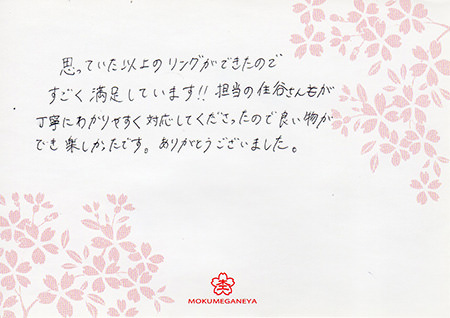 思っていた以上のリングができたので
すごく満足しています!! 担当の住谷さんが
丁寧にわかりやすく対応してくださったので良い物が
でき楽しかったです。ありがとうございました。
MOKUMEGANEYA